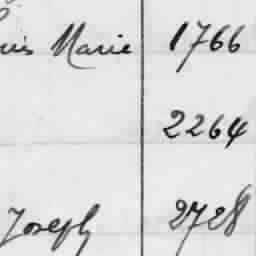 Marie 1766
2264
Joseph 2728